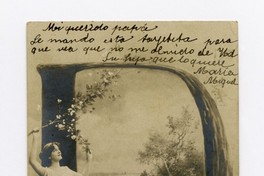 Mi querido papá
Le mando esta tarjetita para
que vea que no me olvido de Vd
Su hija que lo quiere
María